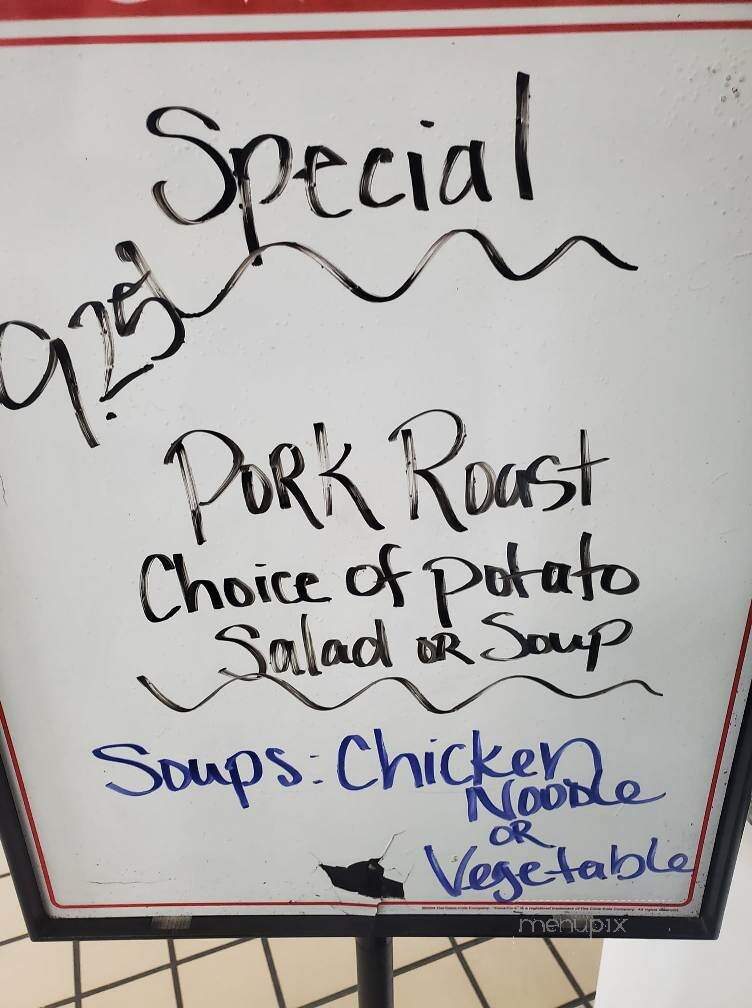 Special
9.25
Pork Roast
Choice of potato
Salad or Soup
Soups: Chicken
Noodle
or
Vegetable
menupix